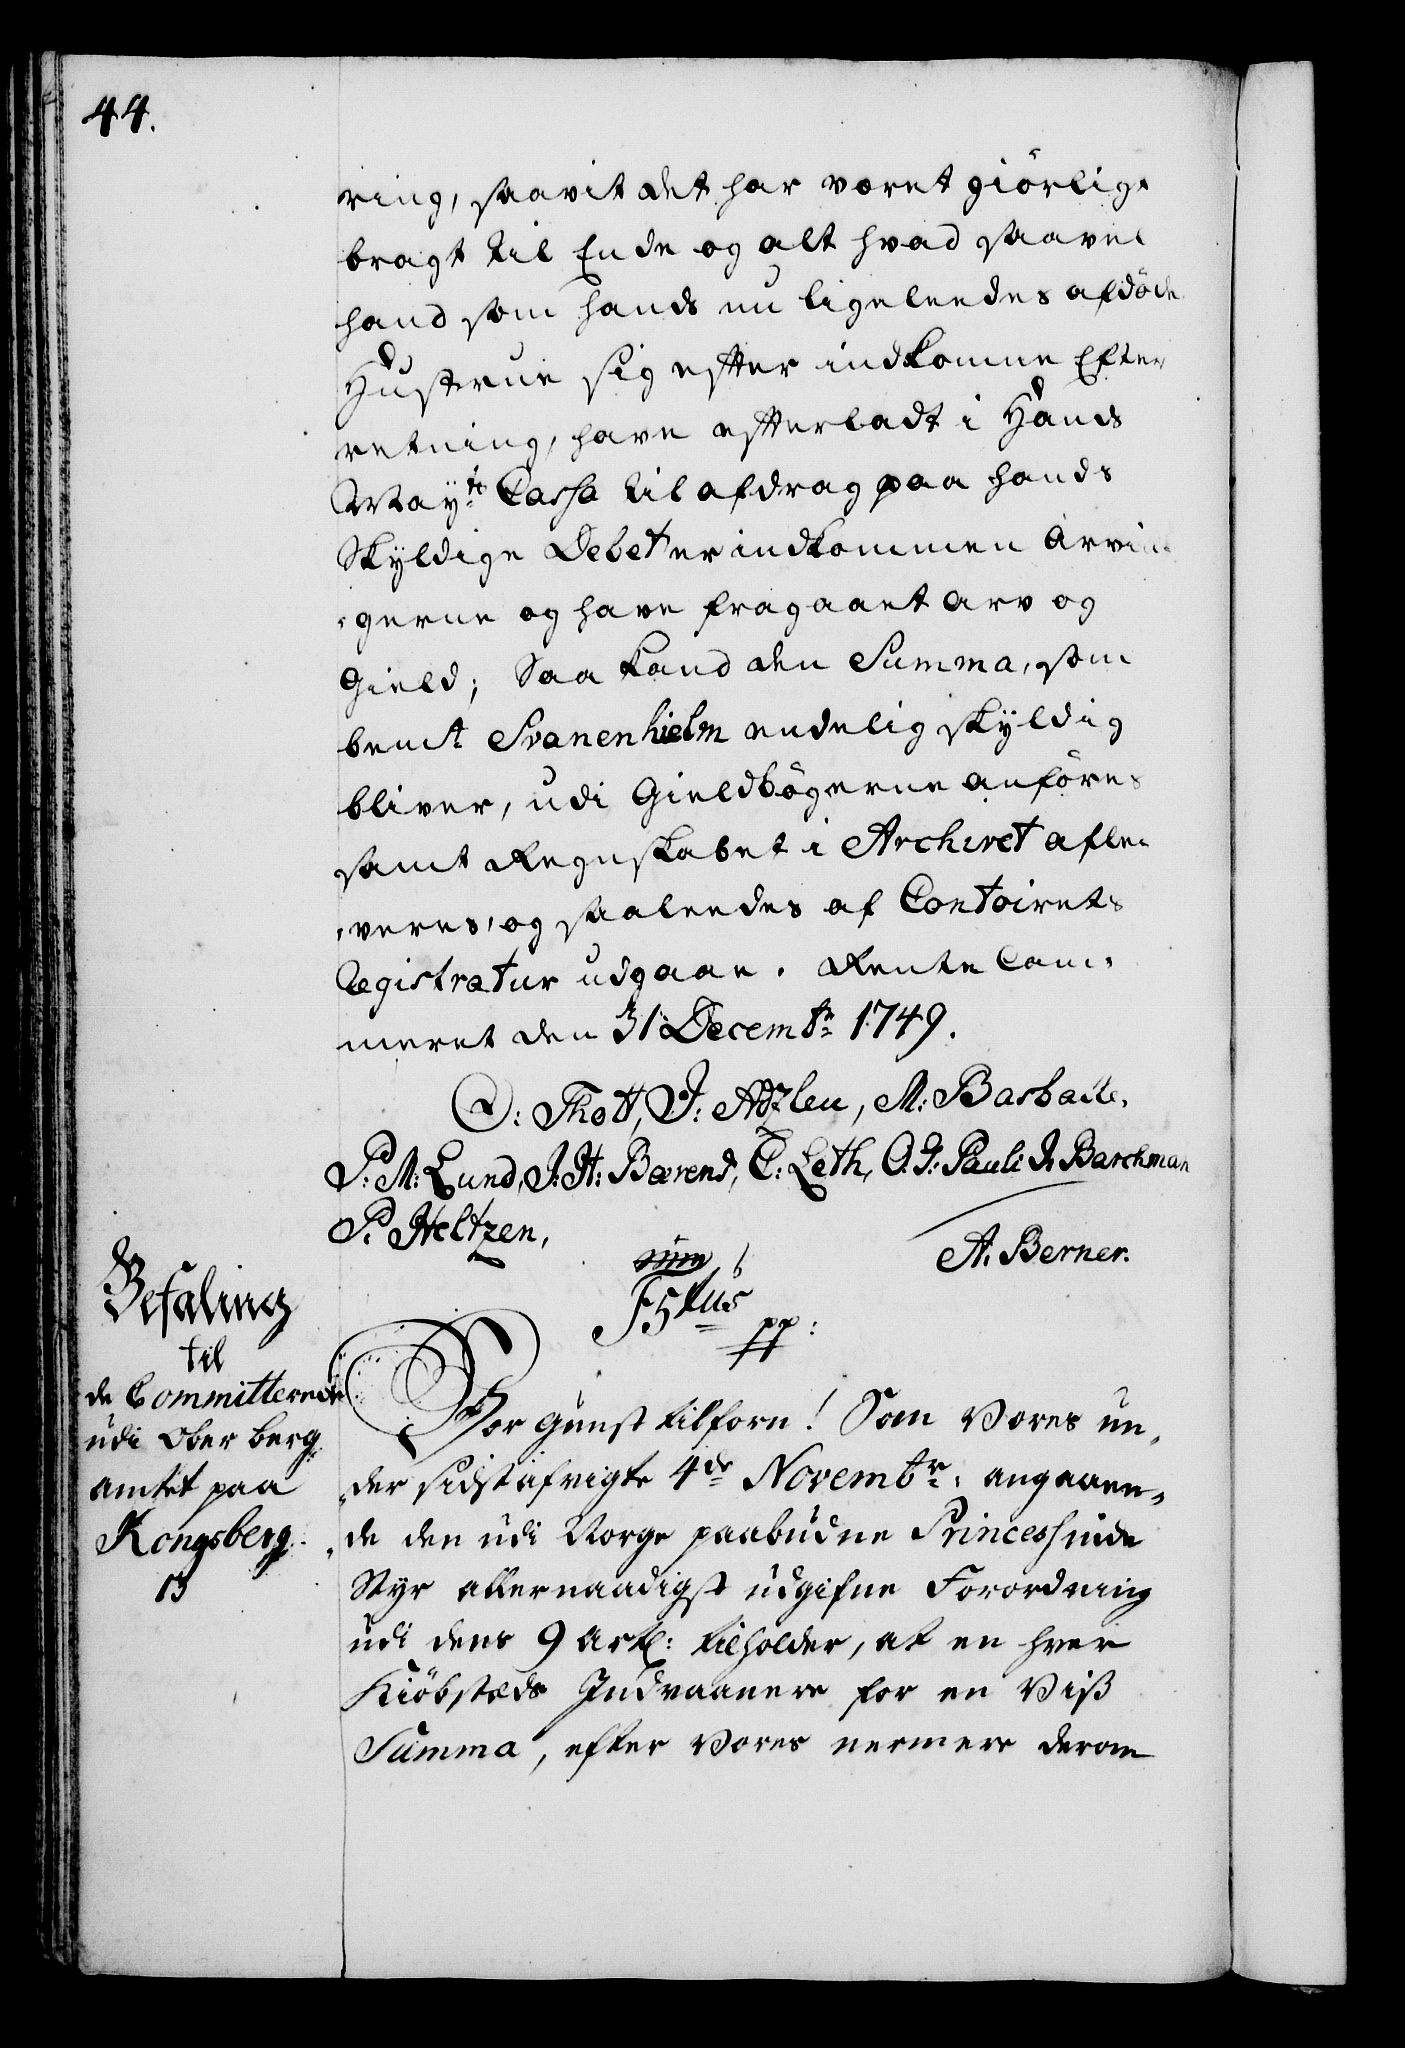 44.
ring, saavit det har været giörligt
bragt til Ende og alt hvad saavel
hand som hands nu ligeleedes afdöde
Hustrue sig efter indkomne Efter
retning, have efterladt i Hands
Mayts Cassa til afdrag paa hands
Skyldige Debet er indkommen Arvin
gerne og have fragaaet Arv og
Gield; Saa kand den Summa, som
bemt Svanenhielm endelig skyldig
bliver, udi Gieldbögerne anföres
samt Regnskabet i Archivet afle
veres, og saaleedes af Contoirets
Registratur udgaae. Rente Cam-
meret den 31 Decembr 1749.
O: Thott, J: Adzleu, M: Bashalle,
P: M: Lund, J: H: Bærend, C: Leth, O. J: Pauli J. Barchman
P. Heltzen,
A. Berner.
F5tus
pp:
Befaling
til
de Committerede
udi Ober berg
amtet paa
Kongsberg
Vor Gunst tilforn! Som Vores un-
der sidstafvigte 4de Novembr: angaaen-
de den udi Norge paabudne Princessinde
Styr allernaadigst udgifne Forordning
udi dens 9 Artl: tilholder, at en hver
Kiöbstæds Indvaanere for en Viss
Summa, efter Vores nermere derom